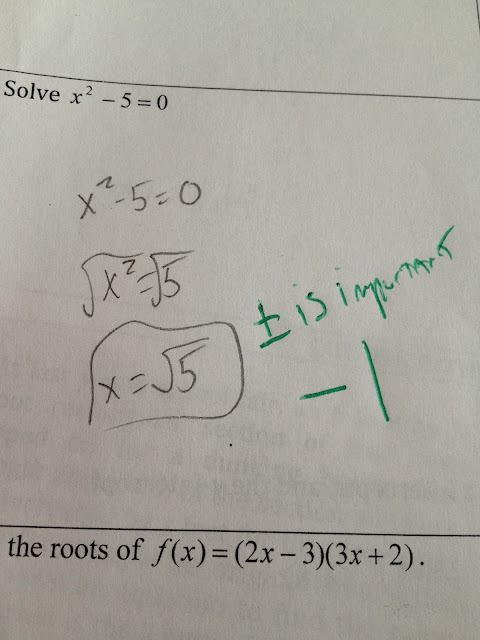 Solve x² − 5 = 0
x²-5=0
√x²=√5
x=√5
± is important
−1
the roots of f(x) = (2x − 3)(3x + 2).